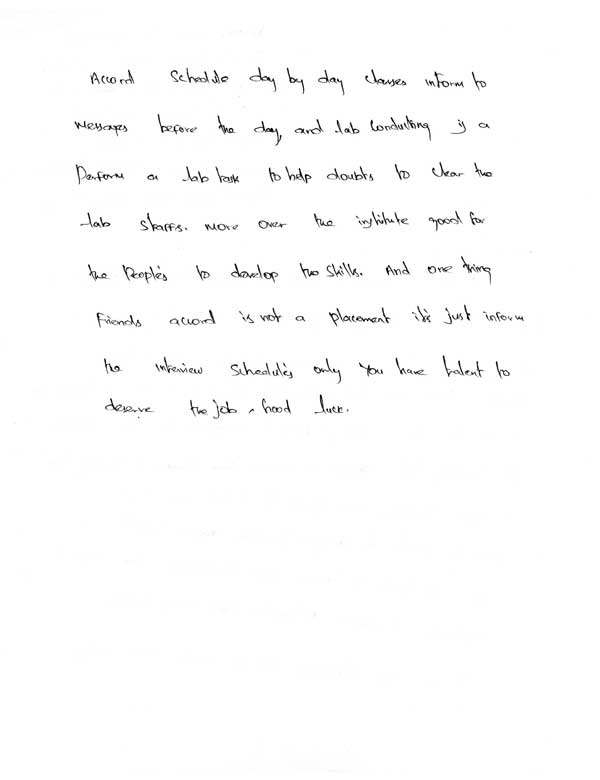 Accord Schedule day by day classes inform to
messages before the day, and lab conducting is a
Perform a lab task to help doubts to clear the
lab staffs. more over the institute good for
the People's to develop the skills. And one thing
Friends accord is not a placement it's just inform
the interview schedule's only you have talent to
deserve the job, good luck.